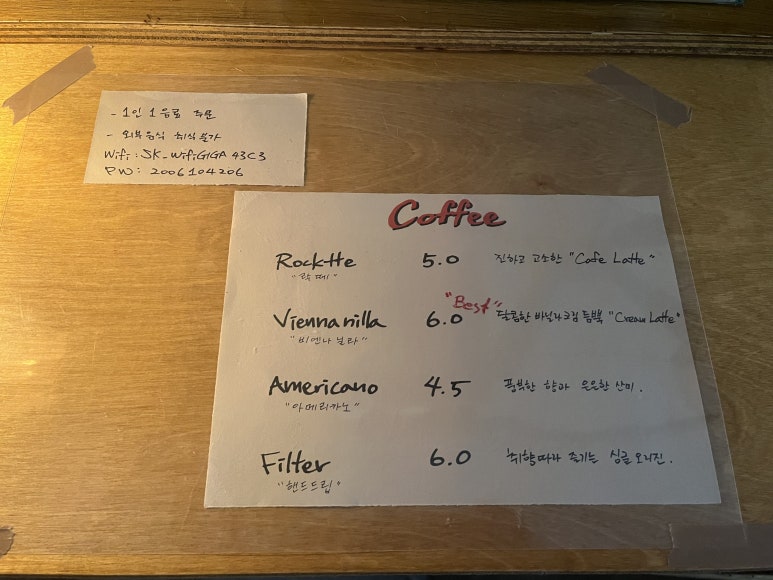 - 1인 1음료 주문
- 외부음식 취식불가
Wifi : SK_WifiGIGA 43C3
PW : 2006104206
Coffee
Rocktte 5.0 진하고 고소한 "Cafe Latte"
"락떼"
"Best"
Viennanilla 6.0 달콤한 바닐라크림 듬뿍 "Cream Latte"
"비엔나 닐라"
Americano 4.5 풍북한 향과 은은한 산미.
"아메리카노"
Filter 6.0 취향따라 즐기는 싱글 오리진.
"핸드드립"